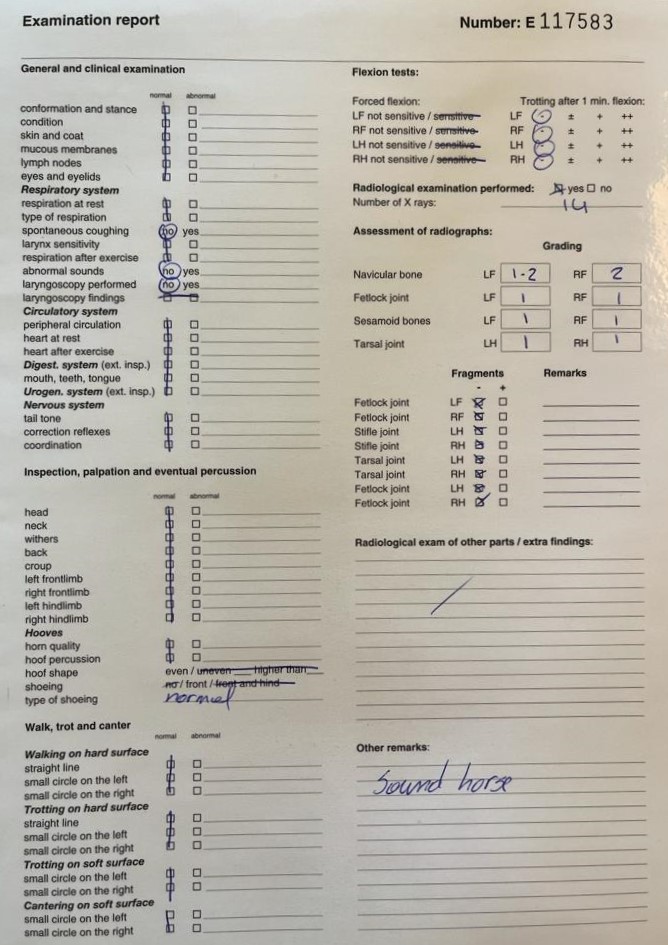 Examination report
Number: E 117583
General and clinical examination
normal abnormal
conformation and stance
condition
skin and coat
mucous membranes
lymph nodes
eyes and eyelids
Respiratory system
respiration at rest
type of respiration
spontaneous coughing no yes
larynx sensitivity
respiration after exercise
abnormal sounds no yes
laryngoscopy performed no yes
laryngoscopy findings
Circulatory system
peripheral circulation
heart at rest
heart after exercise
Digest. system (ext. insp.)
mouth, teeth, tongue
Urogen. system (ext. insp.)
Nervous system
tail tone
correction reflexes
coordination
Inspection, palpation and eventual percussion
normal abnormal
head
neck
withers
back
croup
left frontlimb
right frontlimb
left hindlimb
right hindlimb
Hooves
horn quality
hoof percussion
hoof shape even / uneven___ higher than___
shoeing no / front / front and hind
type of shoeing normal
Walk, trot and canter
normal abnormal
Walking on hard surface
straight line
small circle on the left
small circle on the right
Trotting on hard surface
straight line
small circle on the left
small circle on the right
Trotting on soft surface
small circle on the left
small circle on the right
Cantering on soft surface
small circle on the left
small circle on the right
Flexion tests:
Forced flexion: Trotting after 1 min. flexion:
LF not sensitive / sensitive LF - ± + ++
RF not sensitive / sensitive RF - ± + ++
LH not sensitive / sensitive LH - ± + ++
RH not sensitive / sensitive RH - ± + ++
Radiological examination performed: yes no
Number of X rays: 14
Assessment of radiographs:
Grading
Navicular bone LF 1-2 RF 2
Fetlock joint LF 1 RF 1
Sesamoid bones LF 1 RF 1
Tarsal joint LH 1 RH 1
Fragments Remarks
- +
Fetlock joint LF
Fetlock joint RF
Stifle joint LH
Stifle joint RH
Tarsal joint LH
Tarsal joint RH
Fetlock joint LH
Fetlock joint RH
Radiological exam of other parts / extra findings:
Other remarks:
Sound horse